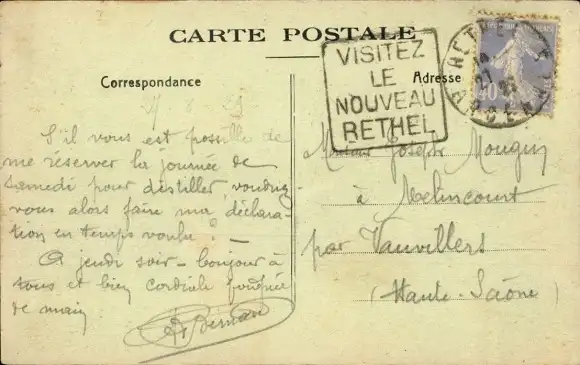 CARTE POSTALE
VISITEZ
LE
NOUVEAU
RETHEL
RETHEL
ARDENNES
40
Correspondance
Adresse
S'il vous est possible de
me réserver la journée de
samedi pour distiller, voudriez
vous alors faire ma déclara-
tion en temps voulu ? —
A jeudi soir - bonjour à
tous et bien cordiale poignée
de main
Bernard
Monsieur Joseph Mougin
à Melincourt
par Vauvillers
(Haute-Saône)